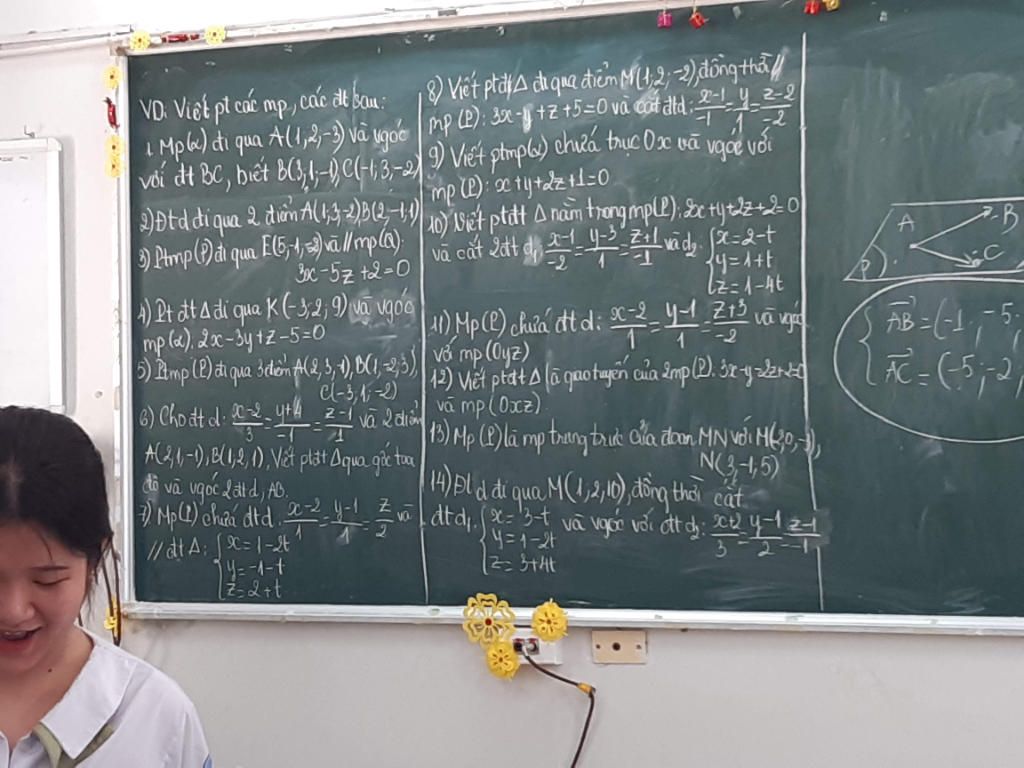 VD: Viết pt các mp, các đt sau:
1. Mp(α) đi qua A(1,2,-3) và vgóc
với đt BC, biết B(3,1,-1), C(-1,3,-2)
2) Đt d đi qua 2 điểm A(1,3,-2), B(2,-1,1)
3) Ptmp(P) đi qua E(5,-1,-2) và // mp(Q):
3x-5z+2=0
4) Pt đt Δ đi qua K(-3;2;9) và vgóc
mp(α): 2x-3y+z-5=0
5) Ptmp(P) đi qua 3 điểm A(2,3,-1), B(1,-2,3),
C(-3,1,-2)
6) Cho đt d: (x-2)/3 = (y+4)/-1 = (z-1)/1 và 2 điểm
A(2,1,-1), B(1,2,1), Viết ptđt Δ qua gốc toạ
độ và vgóc 2 đt d, AB.
7) Mp(P) chứa đt d: (x-2)/1 = (y-1)/1 = z/2 và
// đt Δ: { x=1-2t
y=-1-t
z=2+t
8) Viết ptđt Δ đi qua điểm M(1;2;-2), đồng thời //
mp(P): 3x-y+z+5=0 và cắt đt d: (x-1)/-1 = y/1 = (z-2)/-2
9) Viết ptmp(α) chứa trục Ox và vgóc với
mp(P): x+y+2z+1=0
10) Viết ptđt Δ nằm trong mp(P): 2x+y+2z+2=0
và cắt 2 đt d₁: (x-1)/-2 = (y-3)/1 = (z+1)/-1 và d₂: { x=2-t
y=1+t
z=1-4t
11) Mp(P) chứa đt d: (x-2)/1 = (y-1)/1 = (z+3)/-2 và vgóc
với mp(Oyz)
12) Viết ptđt Δ là giao tuyến của 2 mp(P): 3x-y-2z+2=0
và mp(Oxz)
13) Mp(P) là mp trung trực của đoạn MN với
N(3,-1,5)
14) Đt d đi qua M(1,2,10), đồng thời cắt
đt d₁: { x=3-t
y=1-2t
z=3+4t
và vgóc với đt d₂: (x+2)/3 = (y-1)/2 = (z-1)/-1
A
B
C
P)
{ AB=(-1,-5
AC=(-5,-2,